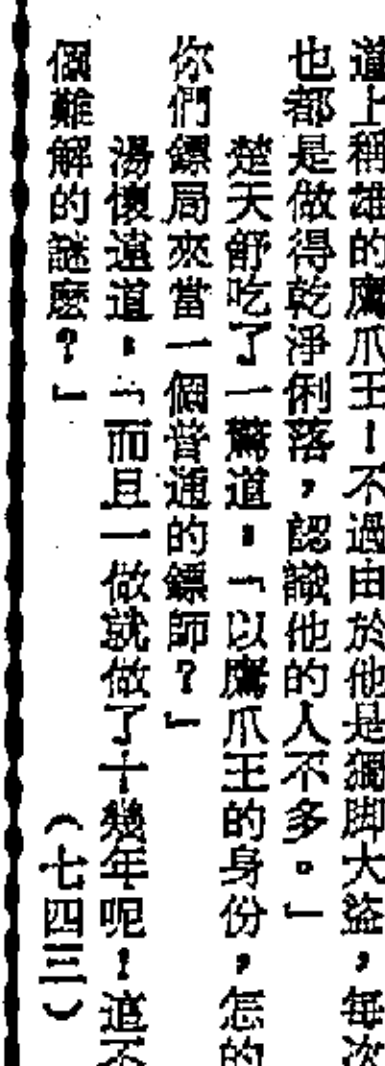 道上稱雄的鷹爪王！不過由於他是獨脚大盜，每次
也都是做得乾淨俐落，認識他的人不多。」
楚天舒吃了一驚道：「以鷹爪王的身份，怎的
你們鏢局來當一個普通的鏢師？」
湯懷遠道：「而且一做就做了十幾年呢！道不
個難解的謎麼？」
（七四三）